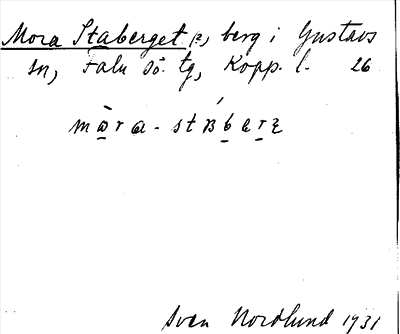 Mora Staberget p., berg i Gustavs
sn, Falu sö. tg, Kopp. l. 26
Sven Nordlund 1931